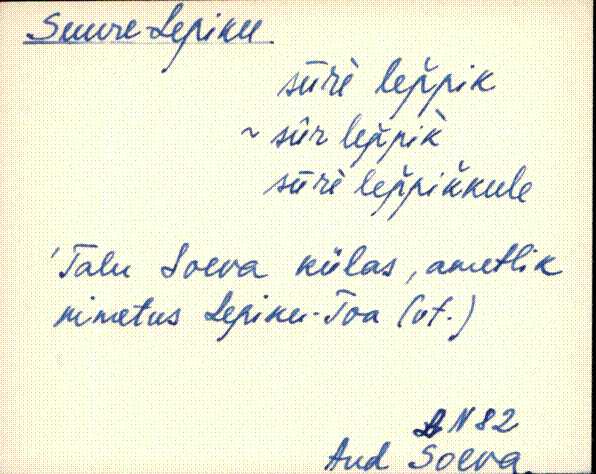 Suure-Lepiku
sūrè lep̆pik
~ sūr lep̆pik̀
sūrè lep̆pik̆kule
'Talu Soeva külas, ametlik
nimetus Lepiku-Toa (vt.)
N 82
Aud Soeva